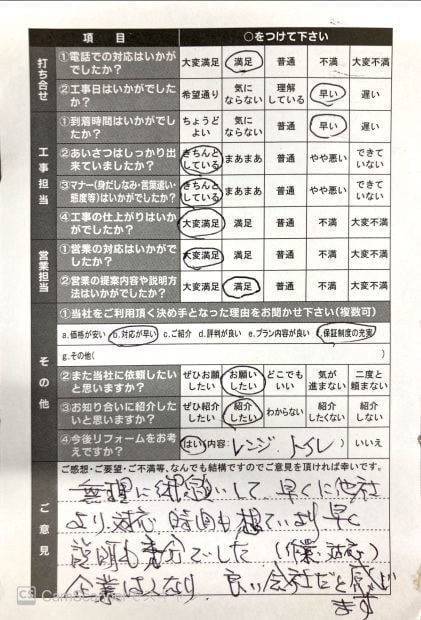 項 目 ○をつけて下さい
打ち合せ
①電話での対応はいかがでしたか？ 大変満足 満足 普通 不満 大変不満
②工事日はいかがでしたか？ 希望通り 気にならない 理解している 早い 遅い
工事担当
①到着時間はいかがでしたか？ ちょうどよい 気にならない 普通 早い 遅い
②あいさつはしっかり出来ていましたか？ きちんとしている まあまあ 普通 やや悪い できていない
③マナー(身だしなみ・言葉遣い・態度等)はいかがでしたか？ きちんとしている まあまあ 普通 やや悪い できていない
④工事の仕上がりはいかがでしたか？ 大変満足 満足 普通 不満 大変不満
営業担当
①営業の対応はいかがでしたか？ 大変満足 満足 普通 不満 大変不満
②営業の提案内容や説明方法はいかがでしたか？ 大変満足 満足 普通 不満 大変不満
その他
①当社をご利用頂く決め手となった理由をお聞かせ下さい(複数可)
a.価格が安い b.対応が早い c.ご紹介 d.評判が良い e.プラン内容が良い f.保証制度の充実
g.その他( )
②また当社に依頼したいと思いますか？ ぜひお願いしたい お願いしたい どこでもいい 気が進まない 二度と頼まない
③お知り合いに紹介したいと思いますか？ ぜひ紹介したい 紹介したい わからない 紹介したくない 紹介しない
④今後リフォームをお考えですか？ はい(内容: レンジ、トイレ ) いいえ
ご意見
ご感想・ご要望・ご不満等、なんでも結構ですのでご意見を頂ければ幸いです。
無理にお願いして、早くに他社
より、対応、時間も想ていより早く
説明も充分でした
企業はんなり、良い会社だと感じ
ます
CS CamScanner